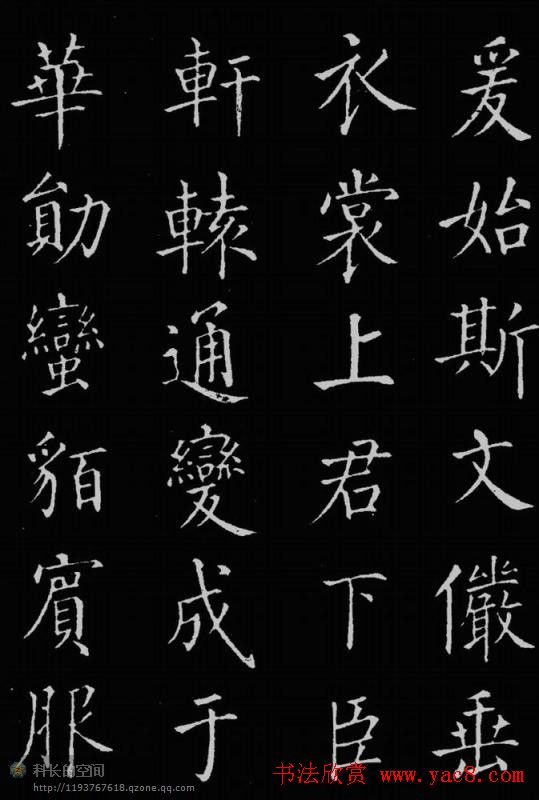 爰始斯文儼垂
衣裳上君下臣
軒轅通變成于
華勛蠻貊賓服
科长的空间
http://1193767618.qzone.qq.com
书法欣赏 www.yac8.com